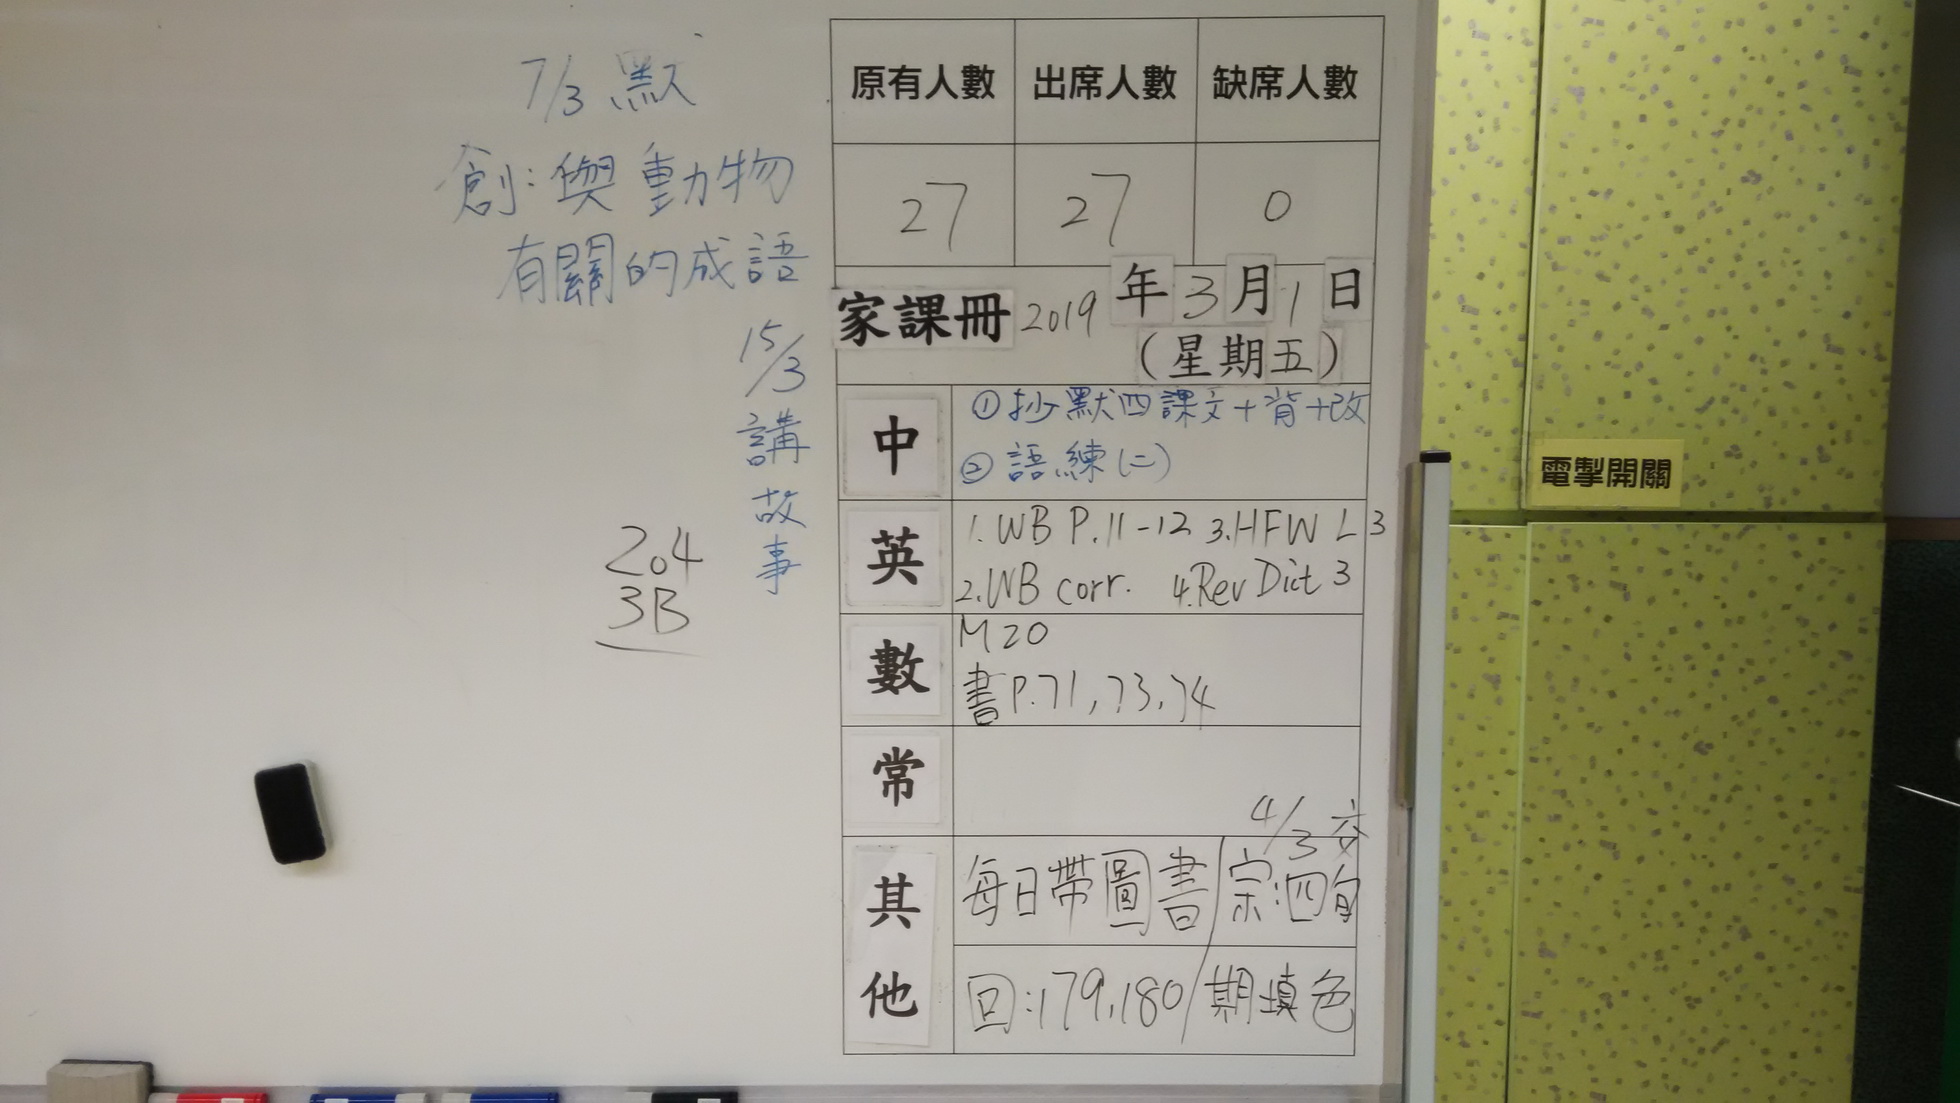 7/3 默
創:與動物
有關的成語
15/3
講
故
事
2.4
3B
原有人數 出席人數 缺席人數
27 27 0
家課冊 2019 年 3 月 1 日
(星期五)
中
①抄默四課文+背+改
②語練(二)
英
1. WB P.11-12 3.HFW L3
2.WB corr. 4.Rev Dict 3
數
M20
書P.71,73,74
常
4/3 交
其他
每日帶圖書/宗:四旬
回:179,180/期填色
電掣開關